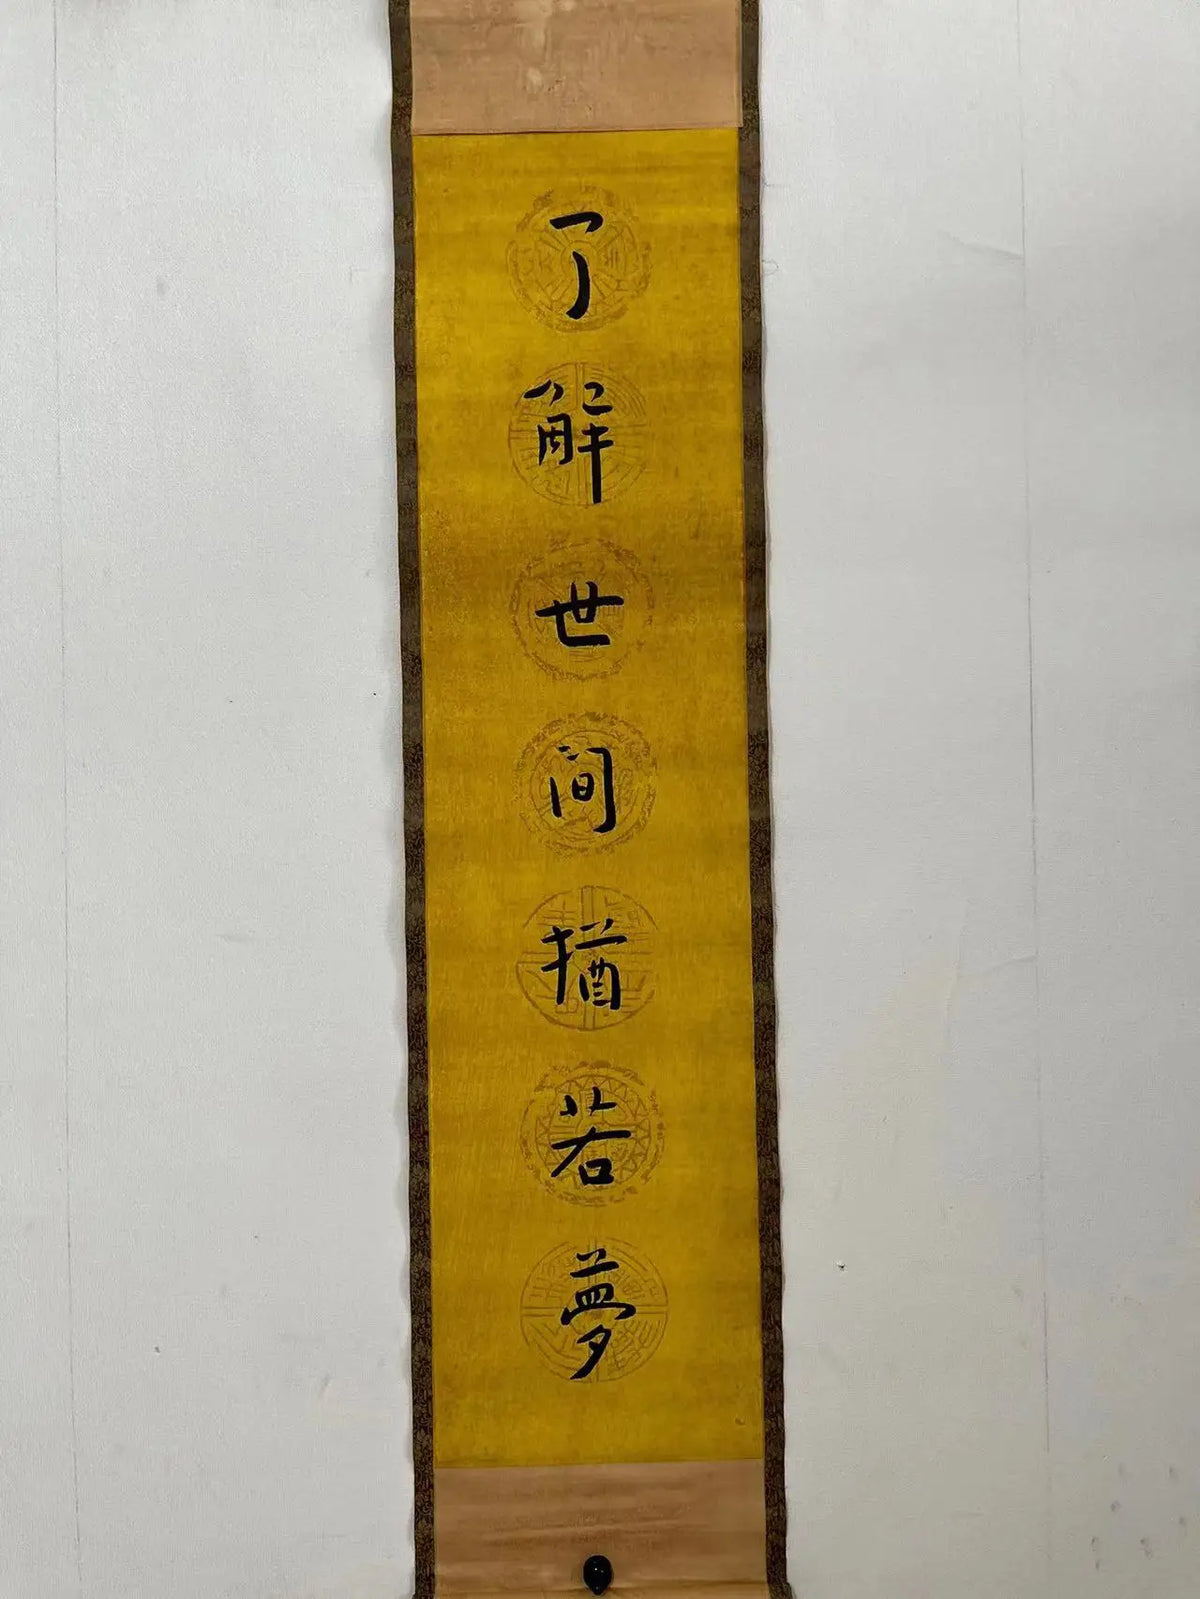 了解世间猶若夢